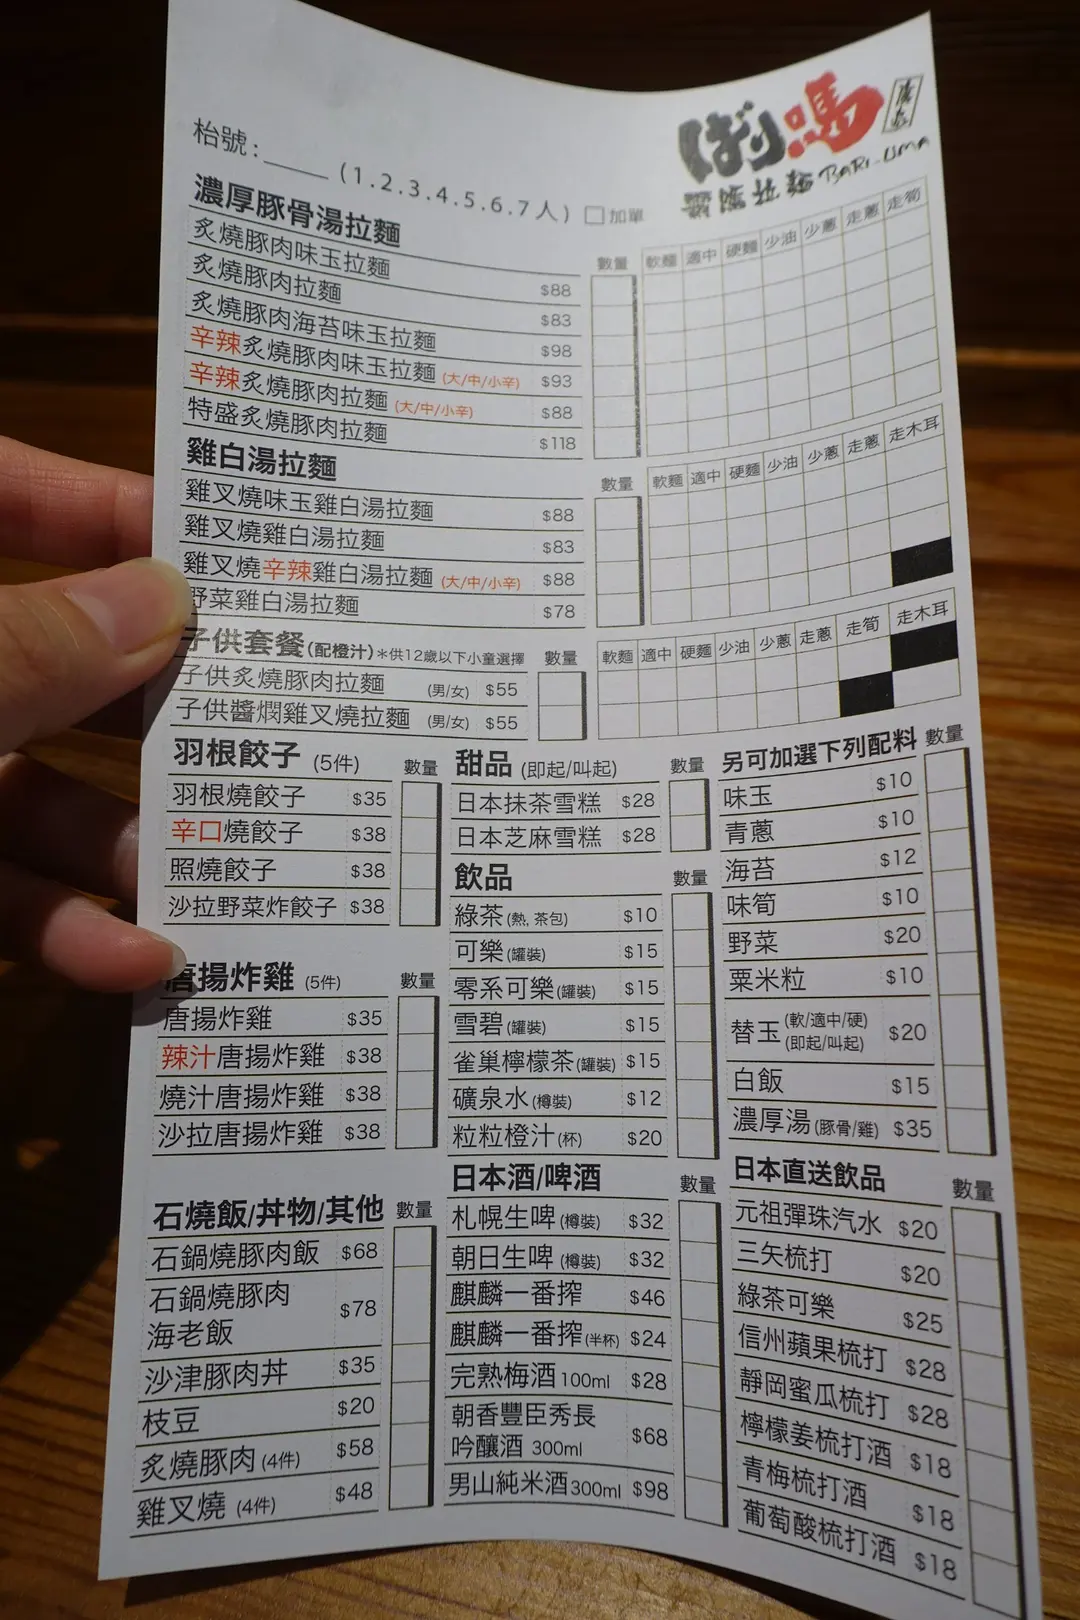 ばり嗎
霸嗎拉麵 BARI-UMA
枱號:
(1.2.3.4.5.6.7人) 加單
濃厚豚骨湯拉麵 數量 軟麵 適中 硬麵 少油 少蔥 走蔥 走筍
炙燒豚肉味玉拉麵 $88
炙燒豚肉拉麵 $83
炙燒豚肉海苔味玉拉麵 $98
辛辣炙燒豚肉味玉拉麵 (大/中/小辛) $93
辛辣炙燒豚肉拉麵 (大/中/小辛) $88
特盛炙燒豚肉拉麵 $118
雞白湯拉麵 數量 軟麵 適中 硬麵 少油 少蔥 走蔥 走木耳
雞叉燒味玉雞白湯拉麵 $88
雞叉燒雞白湯拉麵 $83
雞叉燒辛辣雞白湯拉麵 (大/中/小辛) $88
野菜雞白湯拉麵 $78
子供套餐(配橙汁) *供12歲以下小童選擇 數量 軟麵 適中 硬麵 少油 少蔥 走蔥 走筍 走木耳
子供炙燒豚肉拉麵 (男/女) $55
子供醬燜雞叉燒拉麵 (男/女) $55
羽根餃子 (5件) 數量
羽根燒餃子 $35
辛口燒餃子 $38
照燒餃子 $38
沙拉野菜炸餃子 $38
唐揚炸雞 (5件) 數量
唐揚炸雞 $35
辣汁唐揚炸雞 $38
燒汁唐揚炸雞 $38
沙拉唐揚炸雞 $38
石燒飯/丼物/其他 數量
石鍋燒豚肉飯 $68
石鍋燒豚肉
海老飯 $78
沙津豚肉丼 $35
枝豆 $20
炙燒豚肉 (4件) $58
雞叉燒 (4件) $48
甜品 (即起/叫起) 數量
日本抹茶雪糕 $28
日本芝麻雪糕 $28
飲品 數量
綠茶 (熱, 茶包) $10
可樂 (罐裝) $15
零系可樂 (罐裝) $15
雪碧 (罐裝) $15
雀巢檸檬茶 (罐裝) $15
礦泉水 (樽裝) $12
粒粒橙汁 (杯) $20
日本酒/啤酒 數量
札幌生啤 (樽裝) $32
朝日生啤 (樽裝) $32
麒麟一番搾 $46
麒麟一番搾 (半杯) $24
完熟梅酒 100ml $28
朝香豐臣秀長
吟釀酒 300ml $68
男山純米酒 300ml $98
另可加選下列配料 數量
味玉 $10
青蔥 $10
海苔 $12
味筍 $10
野菜 $20
粟米粒 $10
替玉 (軟/適中/硬)
(即起/叫起) $20
白飯 $15
濃厚湯 (豚骨/雞) $35
日本直送飲品 數量
元祖彈珠汽水 $20
三矢梳打 $20
綠茶可樂 $25
信州蘋果梳打 $28
靜岡蜜瓜梳打 $28
檸檬姜梳打酒 $18
青梅梳打酒 $18
葡萄酸梳打酒 $18